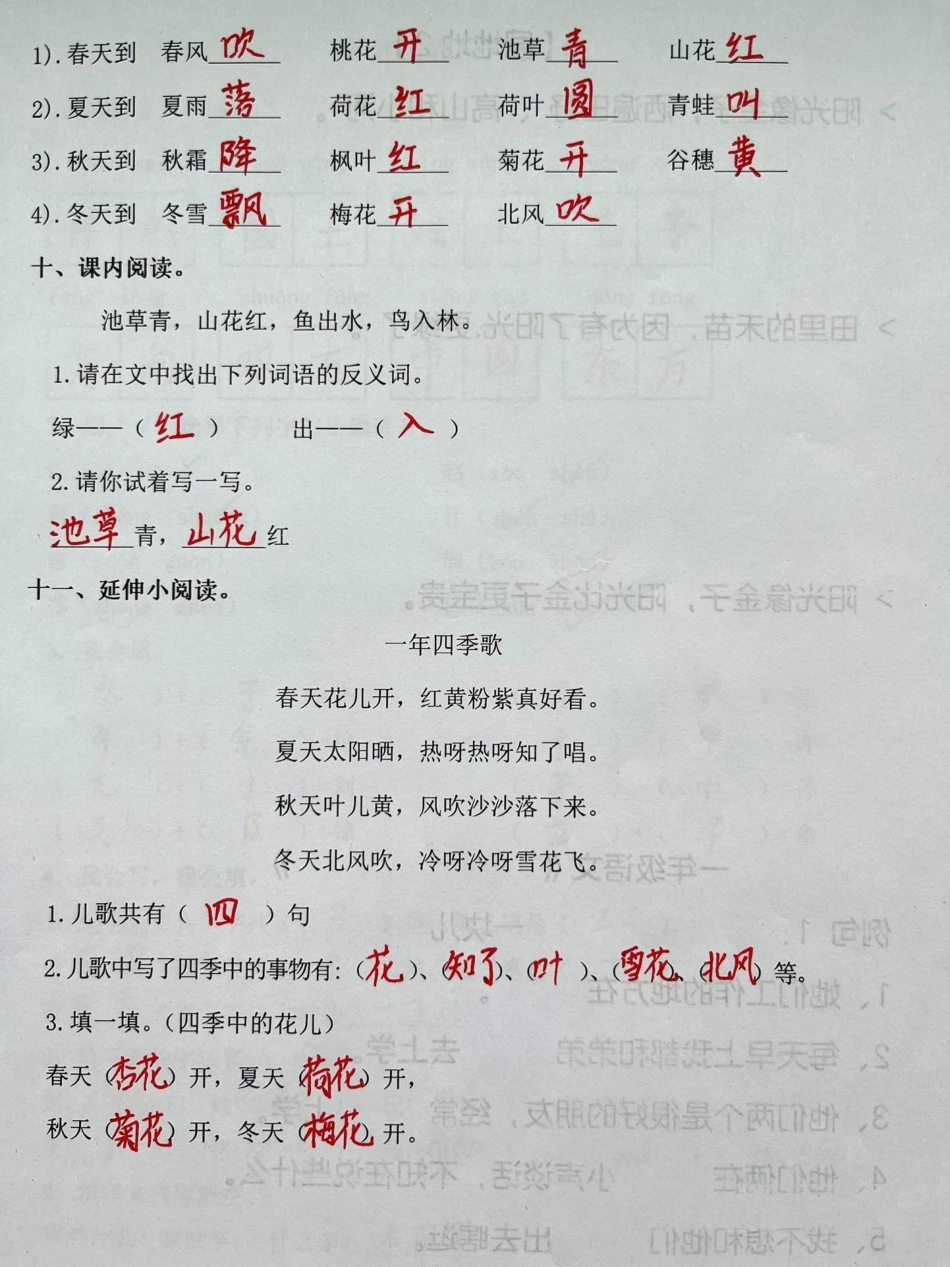 1).春天到 春风吹 桃花开 池草青 山花红
2).夏天到 夏雨落 荷花红 荷叶圆 青蛙叫
3).秋天到 秋霜降 枫叶红 菊花开 谷穗黄
4).冬天到 冬雪飘 梅花开 北风吹
十、课内阅读。
池草青，山花红，鱼出水，鸟入林。
1.请在文中找出下列词语的反义词。
绿——（红）　出——（入）
2.请你试着写一写。
池草青，山花红
十一、延伸小阅读。
一年四季歌
春天花儿开，红黄粉紫真好看。
夏天太阳晒，热呀热呀知了唱。
秋天叶儿黄，风吹沙沙落下来。
冬天北风吹，冷呀冷呀雪花飞。
1.儿歌共有（四）句
2.儿歌中写了四季中的事物有:（花）、（知了）、（叶）、（雪花）、（北风）等。
3.填一填。（四季中的花儿）
春天（杏花）开，夏天（荷花）开，
秋天（菊花）开，冬天（梅花）开。